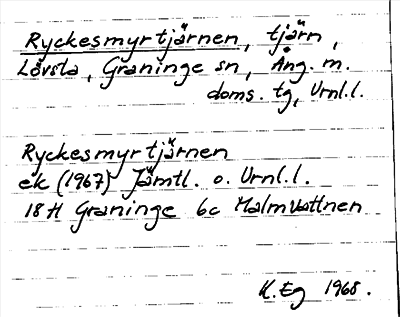 Ryckesmyrtjärnen, tjärn,
Lövsta, Graninge sn, Ång. m.
doms. tg, Urnl.l.
Ryckesmyrtjärnen
ek (1967) Jämtl. o. Urnl.l.
18 H Graninge 6c Malmvattnen
K. Eg 1968.